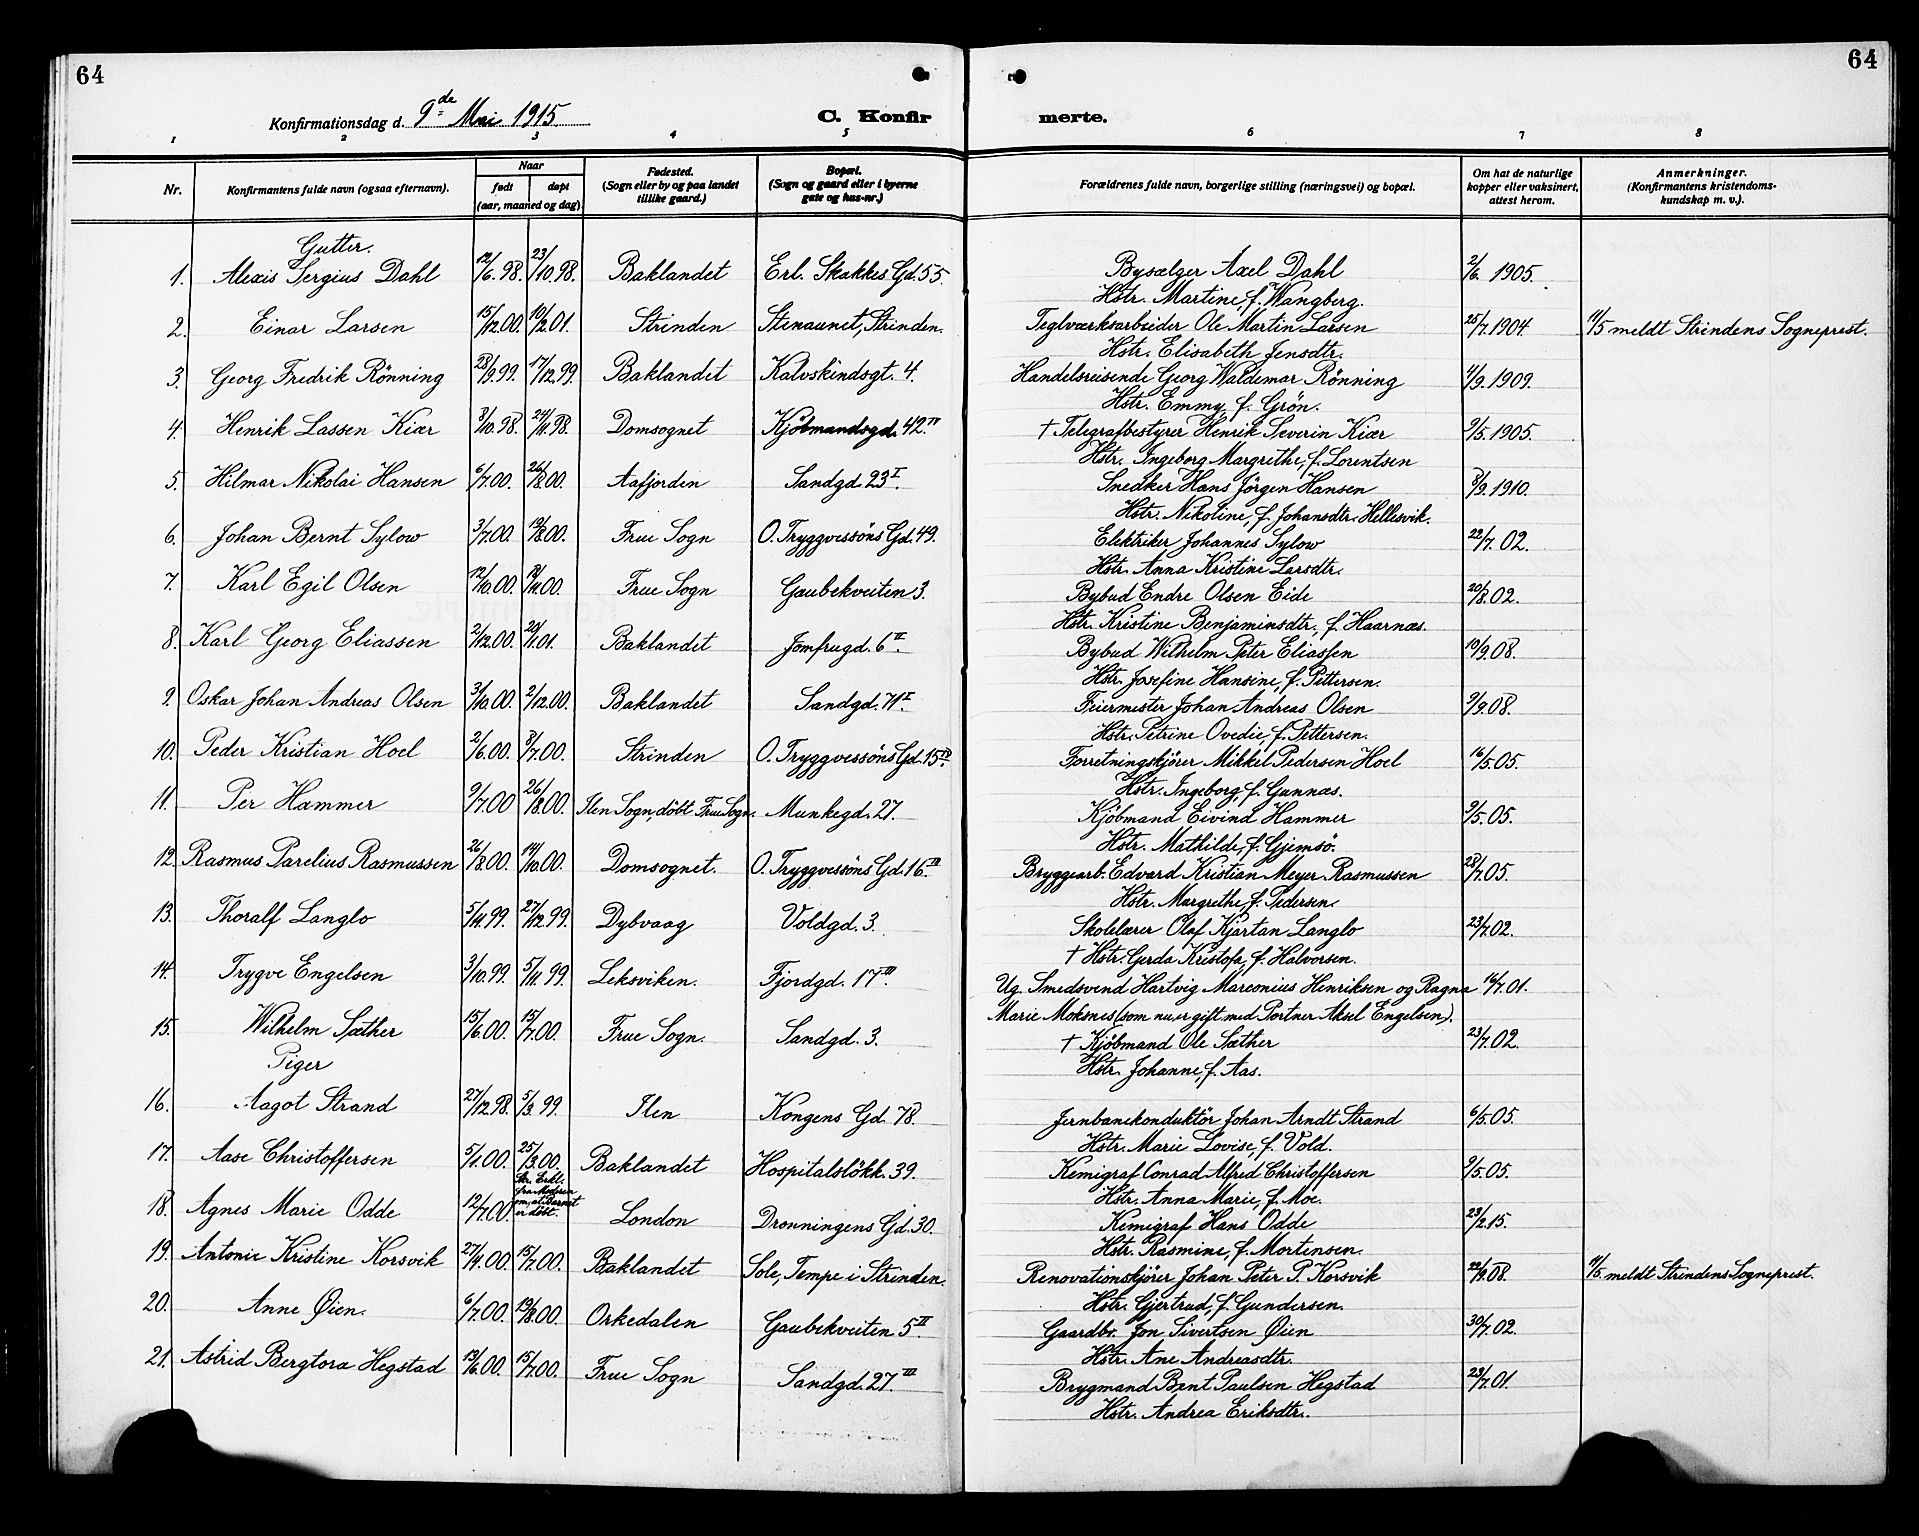 64
64
Konfirmationsdag d. 9de Mai 1915.
C. Konfir
merte.
1 2 3 4 5 6 7 8
Nr. Konfirmantens fulde navn (ogsaa efternavn). Naar født døpt (aar, maaned og dag) Fødested. (Sogn eller by og paa landet tillike gaard.) Bopæl. (Sogn og gaard eller i byerne gate og hus-nr.) Forældrenes fulde navn, borgerlige stilling (næringsvei) og bopæl. Om hat de naturlige kopper eller vaksinert, attest herom. Anmerkninger. (Konfirmantens kristendoms-kundskap m. v.).
Gutter.
1. Alexis Sergius Dahl 12/6.98. 23/10.98. Baklandet Erl. Skakkes Gd. 55. Bysælger Axel Dahl 2/6 1905.
Hstr. Martine, f. Wangberg.
2. Einar Larsen 15/12.00. 10/2.01. Strinden Stenaunet, Strinden. Teglværksarbeider Ole Martin Larsen 25/7.1904. 11/5 meldt Strindens Sogneprest.
Hstr. Elisabeth Jensdtr.
3. Georg Fredrik Rönning 28/9.99. 17/12.99. Baklandet Kalvskindsgt. 4. Handelsreisende Georg Waldemar Rönning 4/9.1909.
Hstr. Emmy, f. Grön.
4. Henrik Lassen Kiær 3/10.98. 24/11.98. Domsognet Kjöbmandsgd. 42.IV † Telegrafbestyrer Henrik Severin Kiær 9/5.1905.
Hstr. Ingeborg Margrethe, f. Lorentsen
5. Hilmar Nikolai Hansen 6/7.00. 26/8.00. Aafjorden Sandgd. 23I. Snedker Hans Jörgen Hansen 8/9.1910.
Hstr. Nikoline, f. Johansdtr. Hellesvik.
6. Johan Bernt Sylow 3/7.00. 19/8.00. Frue Sogn O. Tryggvessöns Gd. 49. Elektriker Johannes Sylow 22/7.02.
Hstr. Anna Kristine Larsdtr.
7. Karl Egil Olsen 12/10.00. 11/11.00. Frue Sogn Gaubekveiten 3. Bybud Endre Olsen Eide 20/8.02.
Hstr. Kristine Benjaminsdtr., f. Haarnæs.
8. Karl Georg Eliassen 2/12.00. 20/1.01. Baklandet Jomfrugd. 6II. Bybud Wilhelm Peter Eliassen 10/9.08.
Hstr. Josefine Hansine, f. Pettersen.
9. Oskar Johan Andreas Olsen 3/10.00. 2/12.00. Baklandet Sandgd. 71I. Feiermester Johan Andreas Olsen 9/9.08.
Hstr. Petrine Ovedie, f. Pettersen.
10. Peder Kristian Hoel 2/6.00. 8/7.00. Strinden O. Tryggvessöns Gd. 15IV. Forretningskjörer Mikkel Pedersen Hoel 16/5.05.
Hstr. Ingeborg, f. Gunnæs.
11. Per Hammer 9/7.00 26/8.00. Ilen Sogn, döbt Frue Sogn. Munkegd. 27. Kjöbmand Eivind Hammer 9/5.05.
Hstr. Mathilde, f. Gjemsö.
12. Rasmus Parelius Rasmussen 26/8.00. 14/10.00. Domsognet. O. Tryggvessöns Gd. 16.III Bryggearb. Edvard Kristian Meyer Rasmussen 28/7.05.
Hstr. Margrethe, f. Pedersen.
13. Thoralf Langlo 5/11.99. 27/12.99. Dybvaag Voldgd. 3. Skolelærer Olaf Kjartan Langlo 23/7.02.
† Hstr. Gerda Kristofa, f. Halvorsen.
14. Trygve Engelsen 3/10.99. 5/11.99. Leksviken. Fjordgd. 17III. Ug. Smedsvend Hartvig Marconius Henriksen og Ragna 16/7.01.
Marie Moksnes (som nu er gift med Portner Aksel Engelsen).
15. Wilhelm Sæther 15/6.00. 15/7.00. Frue Sogn. Sandgd. 3. † Kjöbmand Ole Sæther 23/7.02.
Hstr. Johanne, f. Aas.
Piger
16. Aagot Strand 27/12.98. 5/3.99. Ilen Kongens Gd. 78. Jernbanekonduktör Johan Arndt Strand 6/5.05.
Hstr. Marie Lovise, f. Vold.
17. Aase Christoffersen 5/1.00. 25/3.00. Baklandet Hospitalslökk. 39. Kemigraf Conrad Alfred Christoffersen 9/5.05.
Hstr. Anna Marie, f. Moe.
18. Agnes Marie Odde 12/7.00. Skr. Erkl. fra Moderen om, at Barnet er döbt. London Dronningens Gd. 30. Kemigraf Hans Odde 23/2.15.
Hstr. Rasmine, f. Mortensen.
19. Antonie Kristine Korsvik 27/4.00. 15/7.00. Baklandet Sole, Tempe i Strinden. Renovationskjörer Johan Peter P. Korsvik 22/9.08. 11/5. meldt Strindens Sogneprest.
Hstr. Gjertrud, f. Gundersen.
20. Anne Øien. 6/7.00. 19/8.00. Orkedalen Gaubekveiten 5II. Gaardbr. Jon Sivertsen Øien 30/7.02.
Hstr. Ane Andreasdtr.
21. Astrid Bergtora Hegstad 13/6.00. 15/7.00. Frue Sogn Sandgd. 27.III Brygmand Bent Paulsen Hegstad 23/7.01.
Hstr. Andrea Eriksdtr.